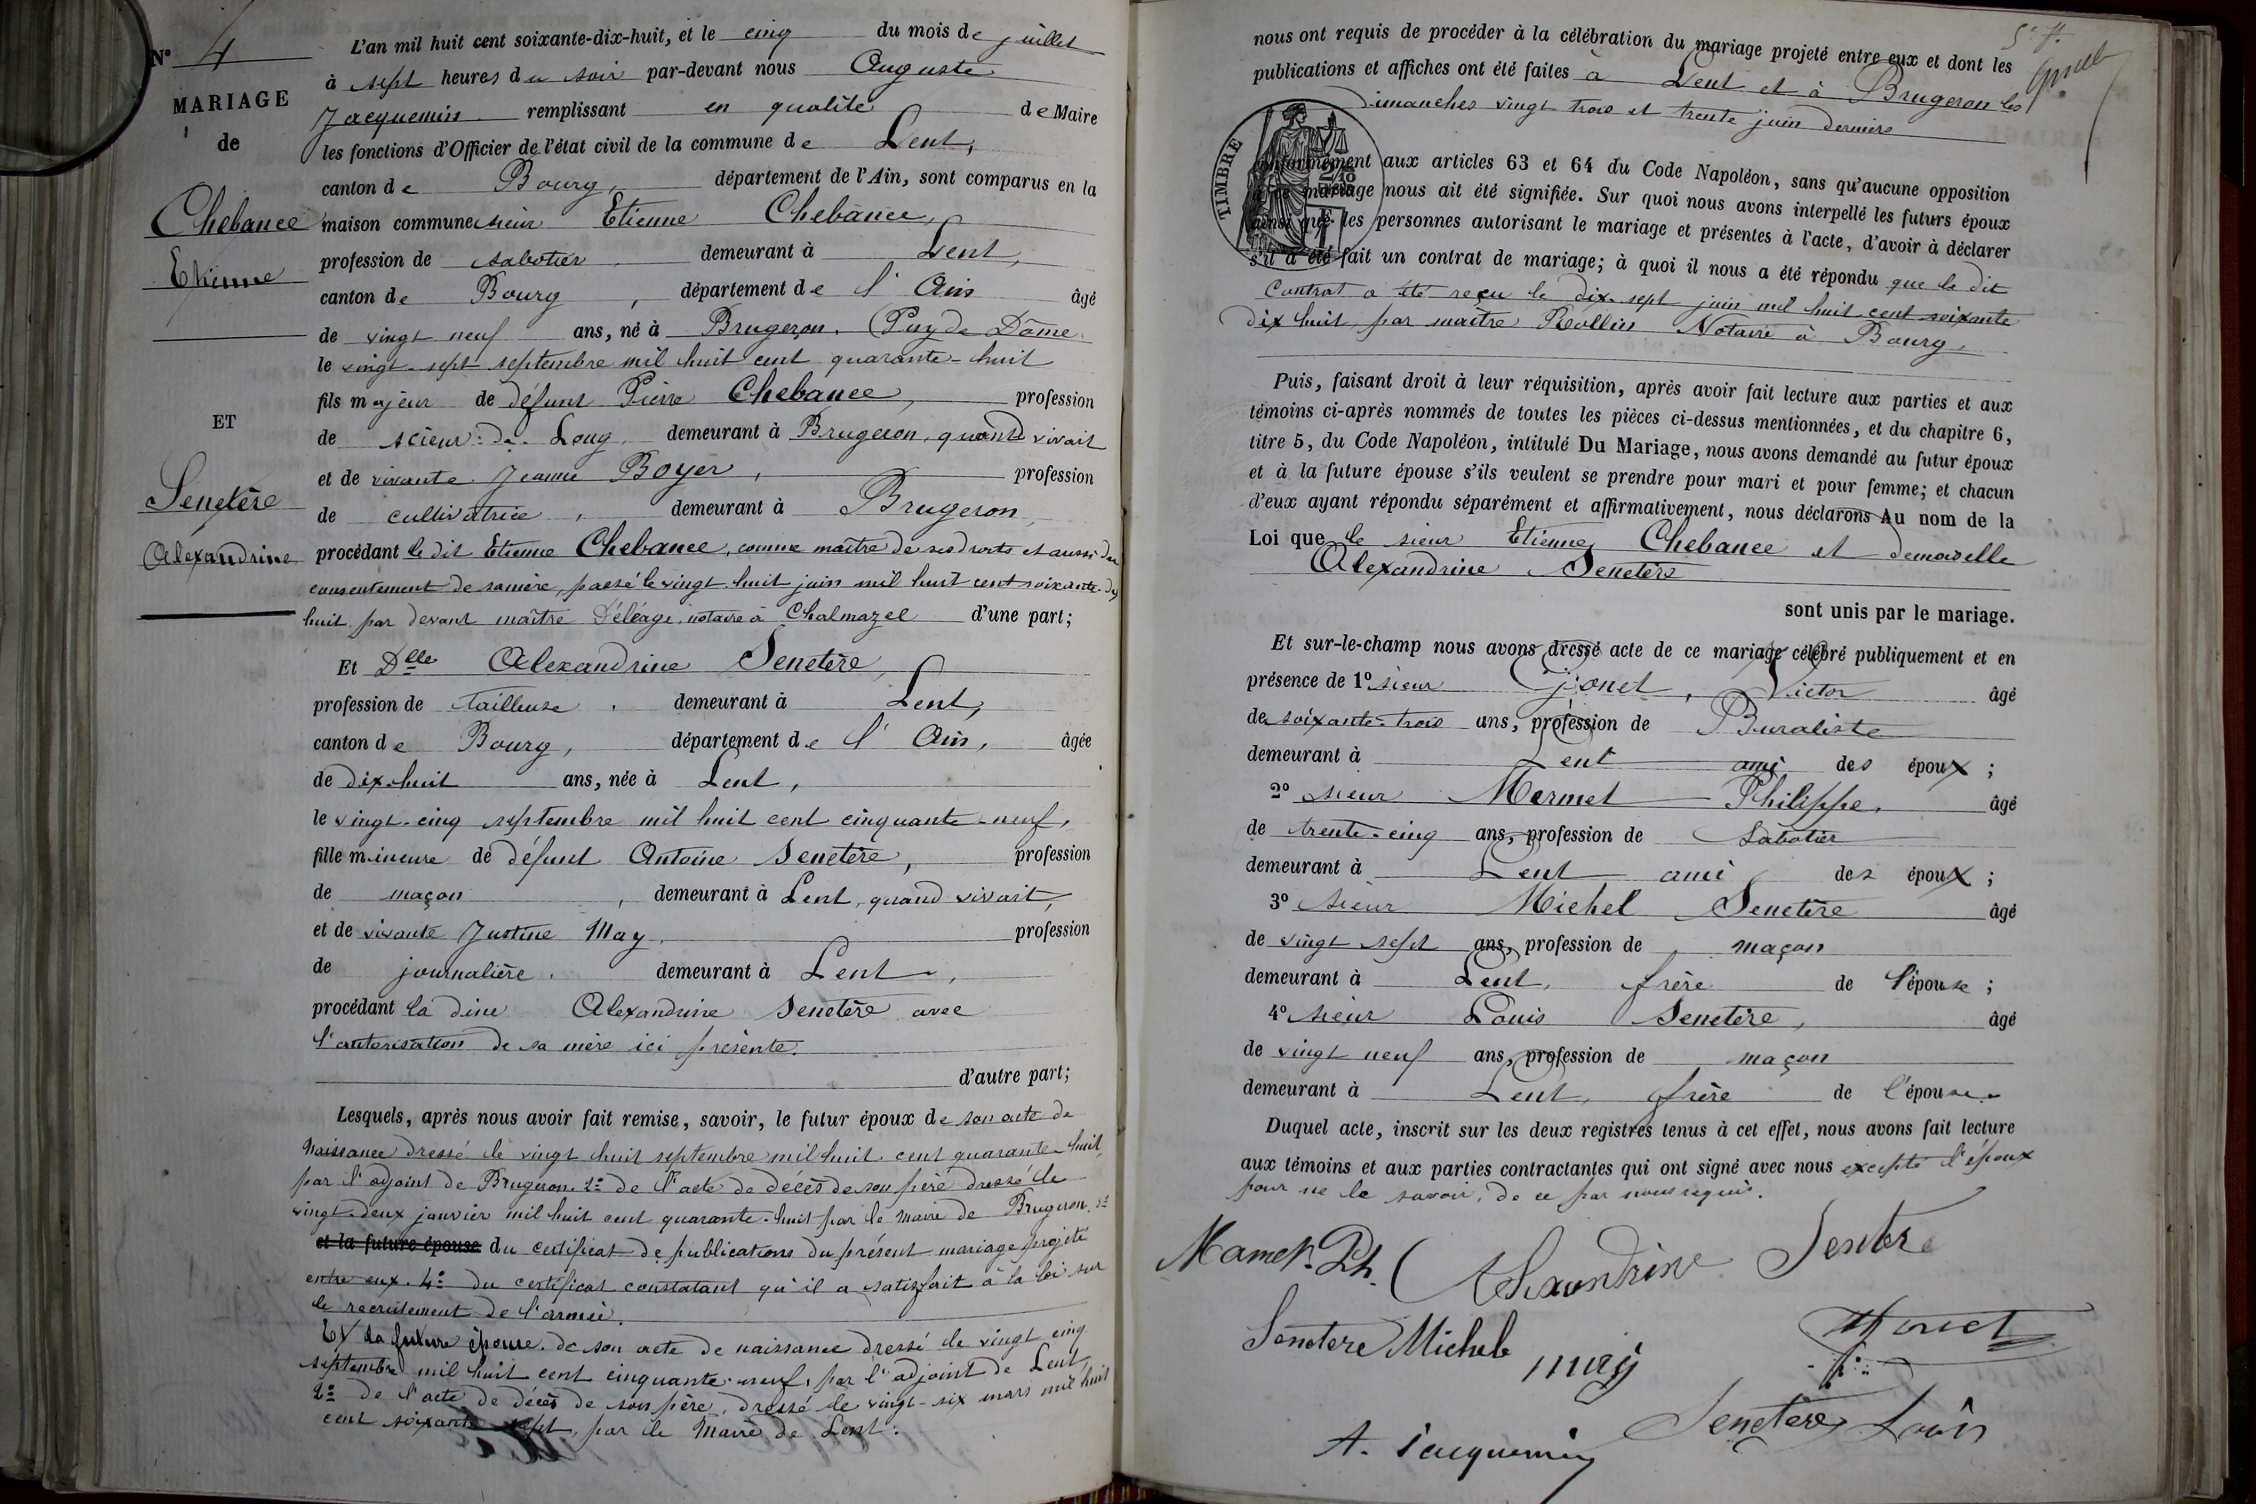 N° 4
MARIAGE
de
Chebance
Etienne
ET
Senetère
Alexandrine
L'an mil huit cent soixante-dix-huit, et le cinq du mois de juillet
à sept heures du soir par-devant nous Auguste
Jacquemin remplissant en qualité de Maire
les fonctions d'Officier de l'état civil de la commune de Lent,
canton de Bourg, département de l'Ain, sont comparus en la
maison commune sieur Etienne Chebance,
profession de sabotier demeurant à Lent,
canton de Bourg, département de l'Ain âgé
de vingt neuf ans, né à Brugeron. (Puy de Dôme
le vingt-sept septembre mil huit cent quarante-huit
fils majeur de défunt Pierre Chebance, profession
de scieur de Long, demeurant à Brugeron, quand vivait
et de vivante Jeanne Boyer, profession
de cultivatrice, demeurant à Brugeron,
procédant le dit Etienne Chebance, comme maître de ses droits et aussi du
consentement de sa mère, passé le vingt-huit juin mil huit cent soixante-dix
huit par devant maître notaire à Chalmazel d'une part;
Et Dlle Alexandrine Senetère,
profession de tailleuse, demeurant à Lent,
canton de Bourg, département de l'Ain, âgée
de dix-huit ans, née à Lent,
le vingt-cinq septembre mil huit cent cinquante-neuf,
fille mineure de défunt Antoine Senetère, profession
de maçon, demeurant à Lent, quand vivait,
et de vivante Justine May, profession
de journalière, demeurant à Lent,
procédant la dine Alexandrine Senetère avec
l'autorisation de sa mère ici présente.
d'autre part;
Lesquels, après nous avoir fait remise, savoir, le futur époux de son acte de
naissance dressé le vingt huit septembre mil huit cent quarante-huit,
par l'adjoint de Brugeron. 2° de l'acte de décès de son père dressé le
vingt-deux janvier mil huit cent quarante-huit par le Maire de Brugeron. 3°
et la future épouse du certificat de publications du présent mariage projeté
entre eux. 4° du certificat constatant qu'il a satisfait à la loi sur
le recrutement de l'armée.
Et la future épouse. de son acte de naissance dressé le vingt cinq
septembre mil huit cent cinquante-neuf, par l'adjoint de Lent,
2° de l'acte de décès de son père, dressé le vingt-six mars mil huit
cent soixante sept, par le Maire de Lent.
nous ont requis de procéder à la célébration du mariage projeté entre eux et dont les
publications et affiches ont été faites à Lent et à Brugeron les
Dimanches vingt trois et trente juin derniers
TIMBRE
conformément aux articles 63 et 64 du Code Napoléon, sans qu'aucune opposition
à ce mariage nous ait été signifiée. Sur quoi nous avons interpellé les futurs époux
ainsi que les personnes autorisant le mariage et présentes à l'acte, d'avoir à déclarer
s'il a été fait un contrat de mariage; à quoi il nous a été répondu que le dit
Contrat a été reçu le dix-sept juin mil huit cent soixante
dix huit, par maître Rollin Notaire à Bourg.
Puis, faisant droit à leur réquisition, après avoir fait lecture aux parties et aux
témoins ci-après nommés de toutes les pièces ci-dessus mentionnées, et du chapitre 6,
titre 5, du Code Napoléon, intitulé Du Mariage, nous avons demandé au futur époux
et à la future épouse s'ils veulent se prendre pour mari et pour femme; et chacun
d'eux ayant répondu séparément et affirmativement, nous déclarons Au nom de la
Loi que le sieur Etienne Chebance et demoiselle
Alexandrine Senetère
sont unis par le mariage.
Et sur-le-champ nous avons dressé acte de ce mariage célébré publiquement et en
présence de 1° sieur Gonet, Victor âgé
de soixante-trois ans, profession de Buraliste
demeurant à Lent ami des époux;
2° sieur Mermet Philippe, âgé
de trente-cinq ans, profession de Sabotier
demeurant à Lent ami des époux;
3° sieur Michel Senetère âgé
de vingt sept ans, profession de maçon
demeurant à Lent, frère de l'épouse;
4° sieur Louis Senetère, âgé
de vingt neuf ans, profession de maçon
demeurant à Lent, frère de l'épouse.
Duquel acte, inscrit sur les deux registres tenus à cet effet, nous avons fait lecture
aux témoins et aux parties contractantes qui ont signé avec nous excepté l'époux
pour ne le savoir, de ce par nous requis.
Mamet. Ph. Alexandrine Senetère
Senetere Michel
may
Senetère Louis
A. Jacquemin